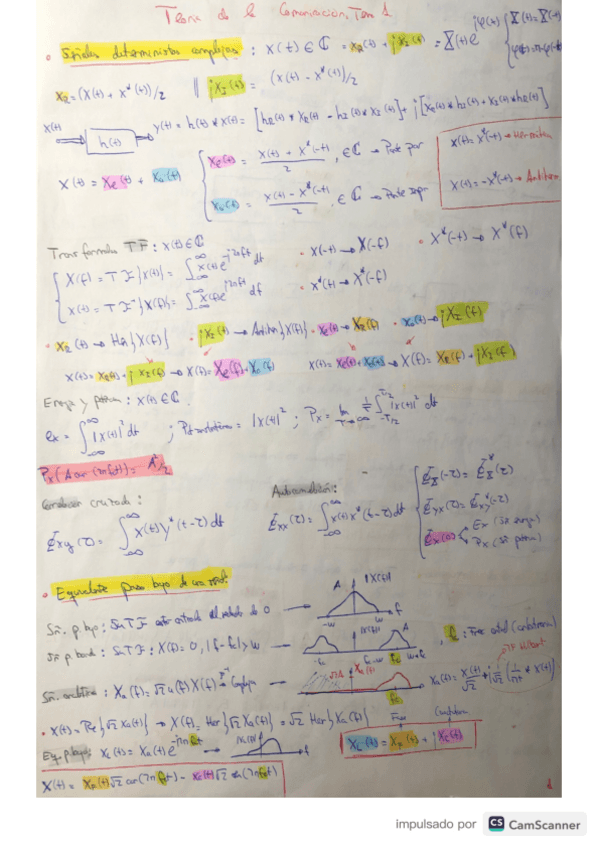 Teoría de la Comunicación. Tema 1
• Señales deterministas complejas : X(t) ∈ ℂ = X_R(t) + j X_I(t)
X_R = (X(t) + X*(t))/2 || j X_I(t) = (X(t) - X*(t))/2
X(t) → h(t) → y(t) = h(t) * X(t) = [h_R(t) * X_R(t) - h_I(t) * X_I(t)] + j [X_R(t) * h_I(t) + X_I(t) * h_R(t)]
X(t) = X_e(t) + X_o(t)
X_e(t) = (X(t) + X*(-t))/2 , ∈ ℂ → Parte par
X_o(t) = (X(t) - X*(-t))/2 , ∈ ℂ → Parte impar
X(t) = X*(-t) → Hermítica
X(t) = -X*(-t) → Antiherm
Transformada TF : X(t) ∈ ℂ
X(f) = TF{X(t)} = ∫_{-∞}^{∞} X(t) e^{-j2πft} dt
X(t) = TF⁻¹{X(f)} = ∫_{-∞}^{∞} X(f) e^{j2πft} df
• X(-t) → X(-f) • X*(-t) → X*(f)
• X*(t) → X*(-f)
• X_R(t) → Her{X(f)} • j X_I(t) → Antiher{X(f)} • X_e(t) → X_R(f) • X_o(t) → j X_I(f)
X(t) = X_R(t) + j X_I(t) → X(f) = X_e(f) + X_o(f) X(t) = X_e(t) + X_o(t) → X(f) = X_R(f) + j X_I(f)
Energía y potencia : X(t) ∈ ℂ.
e_x = ∫_{-∞}^{∞} |X(t)|² dt ; Pot instantánea = |X(t)|² ; P_x = lim_{T→∞} 1/T ∫_{-T/2}^{T/2} |X(t)|² dt
P_x(A cos(2πf_0t)) = A²/2
Correlación cruzada :
Φ_xy(τ) = ∫_{-∞}^{∞} X(t) y*(t-τ) dt
Autocorrelación :
Φ_xx(τ) = ∫_{-∞}^{∞} X(t) X*(t-τ) dt
Φ_x(-τ) = Φ_x*(τ)
Φ_yx(τ) = Φ_xy*(-τ)
Φ_x(0) → E_x (Si energía)
P_x (Si potencia)
• Equivalente paso bajo de una señal:
Señ. p. bajo : Su TF está centrada alrededor de 0 →
A |X(f)| -w w f
Señ p. banda : Su TF : X(f) = 0, |f-f_c| > w →
|X(f)| A -f_c f_c-w f_c w+f_c
f_c : Frec central (arbitraria)
Señ. analítica : X_a(f) = √2 u(f) X(f) → Compleja
√2 A X_a(f) f_c
X_a(t) = X(t)/√2 + j 1/√2 (1/πt * X(t))
TF Hilbert
• X(t) = Re{√2 X_a(t)} → X(f) = Her{√2 X_a(f)} = √2 Her{X_a(f)}
Eq. p. bajo : X_L(t) = X_a(t) e^{-j2πf_ct} →
|X_L(f)| f
Fase Cuadratura
X_L(t) = X_F(t) + j X_C(t)
X(t) = X_F(t) √2 cos(2πf_ct) - X_C(t) √2 sen(2πf_ct)
1
impulsado por CS CamScanner